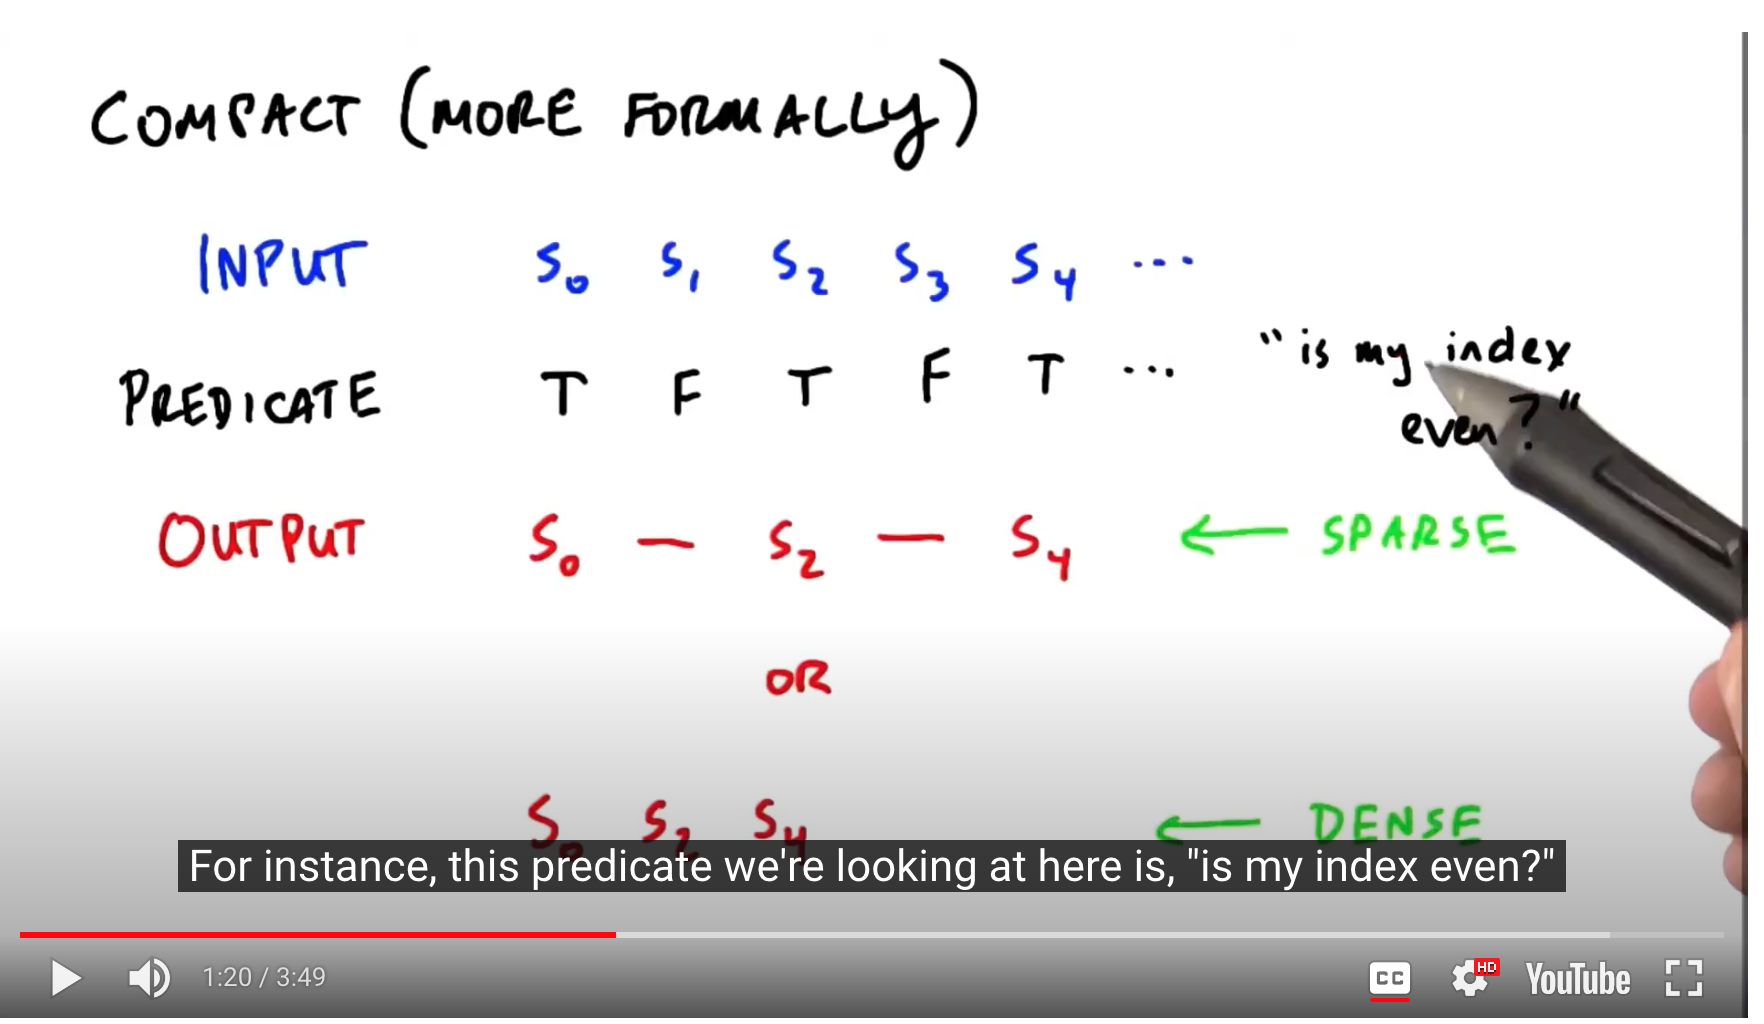 COMPACT (MORE FORMALLY)
INPUT S₀ S₁ S₂ S₃ S₄ ...
PREDICATE T F T F T ... "is my index
even?"
OUTPUT S₀ — S₂ — S₄ ← SPARSE
OR
S₀ S₂ S₄ ← DENSE
For instance, this predicate we're looking at here is, "is my index even?"
1:20 / 3:49
CC
HD
YouTube